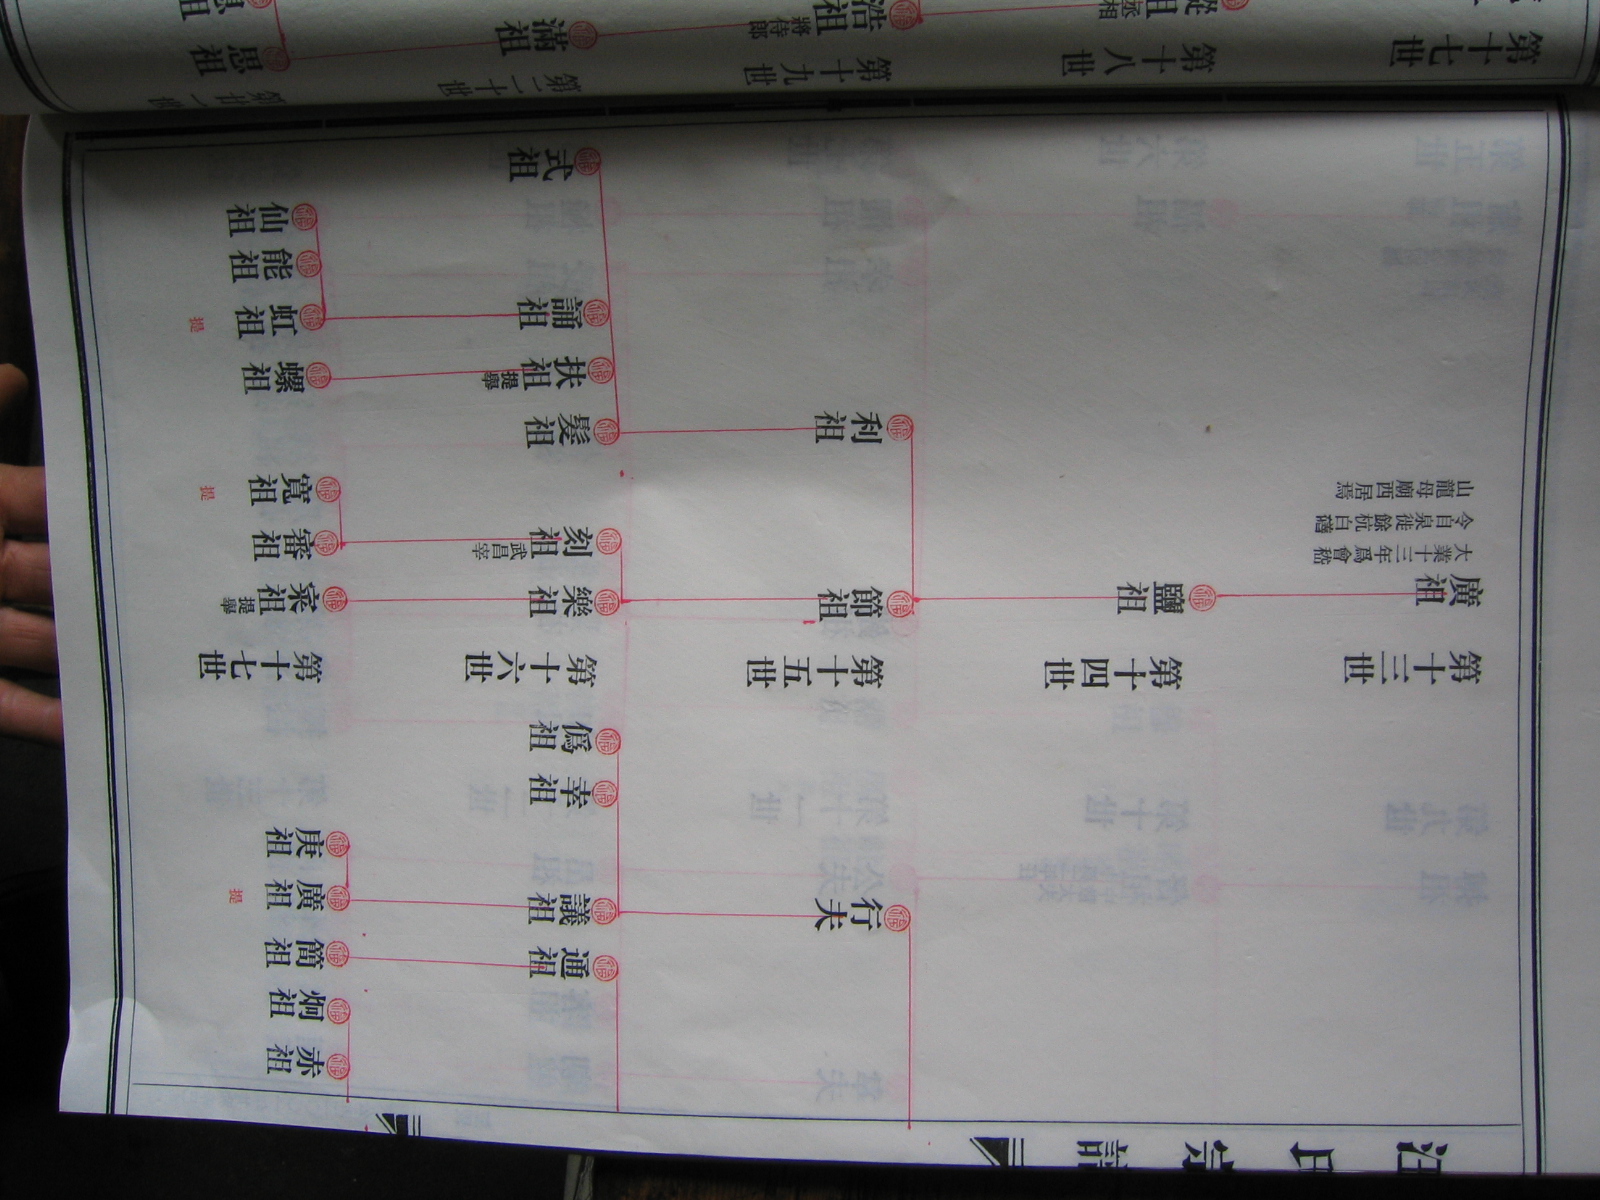 第十三世
廣祖
大業十三年爲會稽
令自泉徙餘杭白磻
山龍母廟西居焉
第十四世
鹽祖
行夫
第十五世
節祖
利祖
通祖
議祖
幸祖
僞祖
第十六世
樂祖
刻祖 武昌宰
髮祖
扶祖 提舉
誦祖
式祖
赤祖
炯祖
簡祖
廣祖 提
庚祖
第十七世
寀祖 提舉
審祖
寬祖 提
螺祖
虹祖 提
能祖
仙祖
第十七世
第十八世
第十九世
第二十世
第廿一世
丞相
浩祖 將侍郎
滿祖
思祖